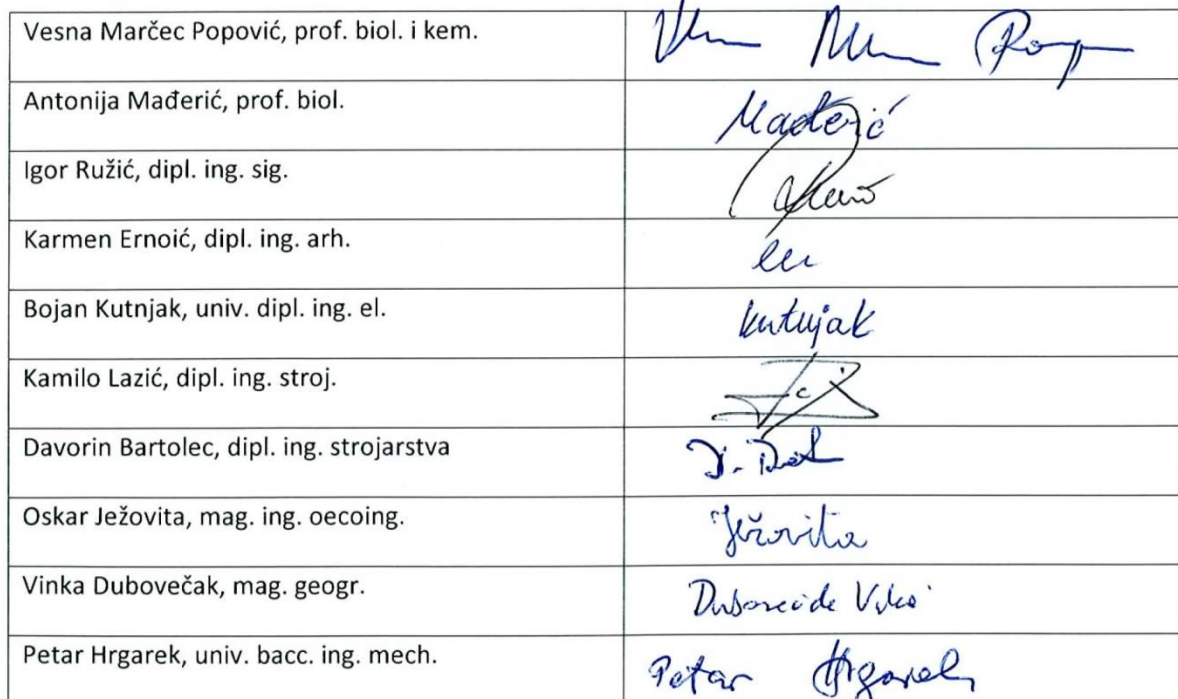 Vesna Marčec Popović, prof. biol. i kem.
Antonija Mađerić, prof. biol.
Mađerić
Igor Ružić, dipl. ing. sig.
Karmen Ernoić, dipl. ing. arh.
Bojan Kutnjak, univ. dipl. ing. el.
Kutnjak
Kamilo Lazić, dipl. ing. stroj.
Davorin Bartolec, dipl. ing. strojarstva
Oskar Ježovita, mag. ing. oecoing.
Ježovita
Vinka Dubovečak, mag. geogr.
Petar Hrgarek, univ. bacc. ing. mech.
Petar Hrgarek